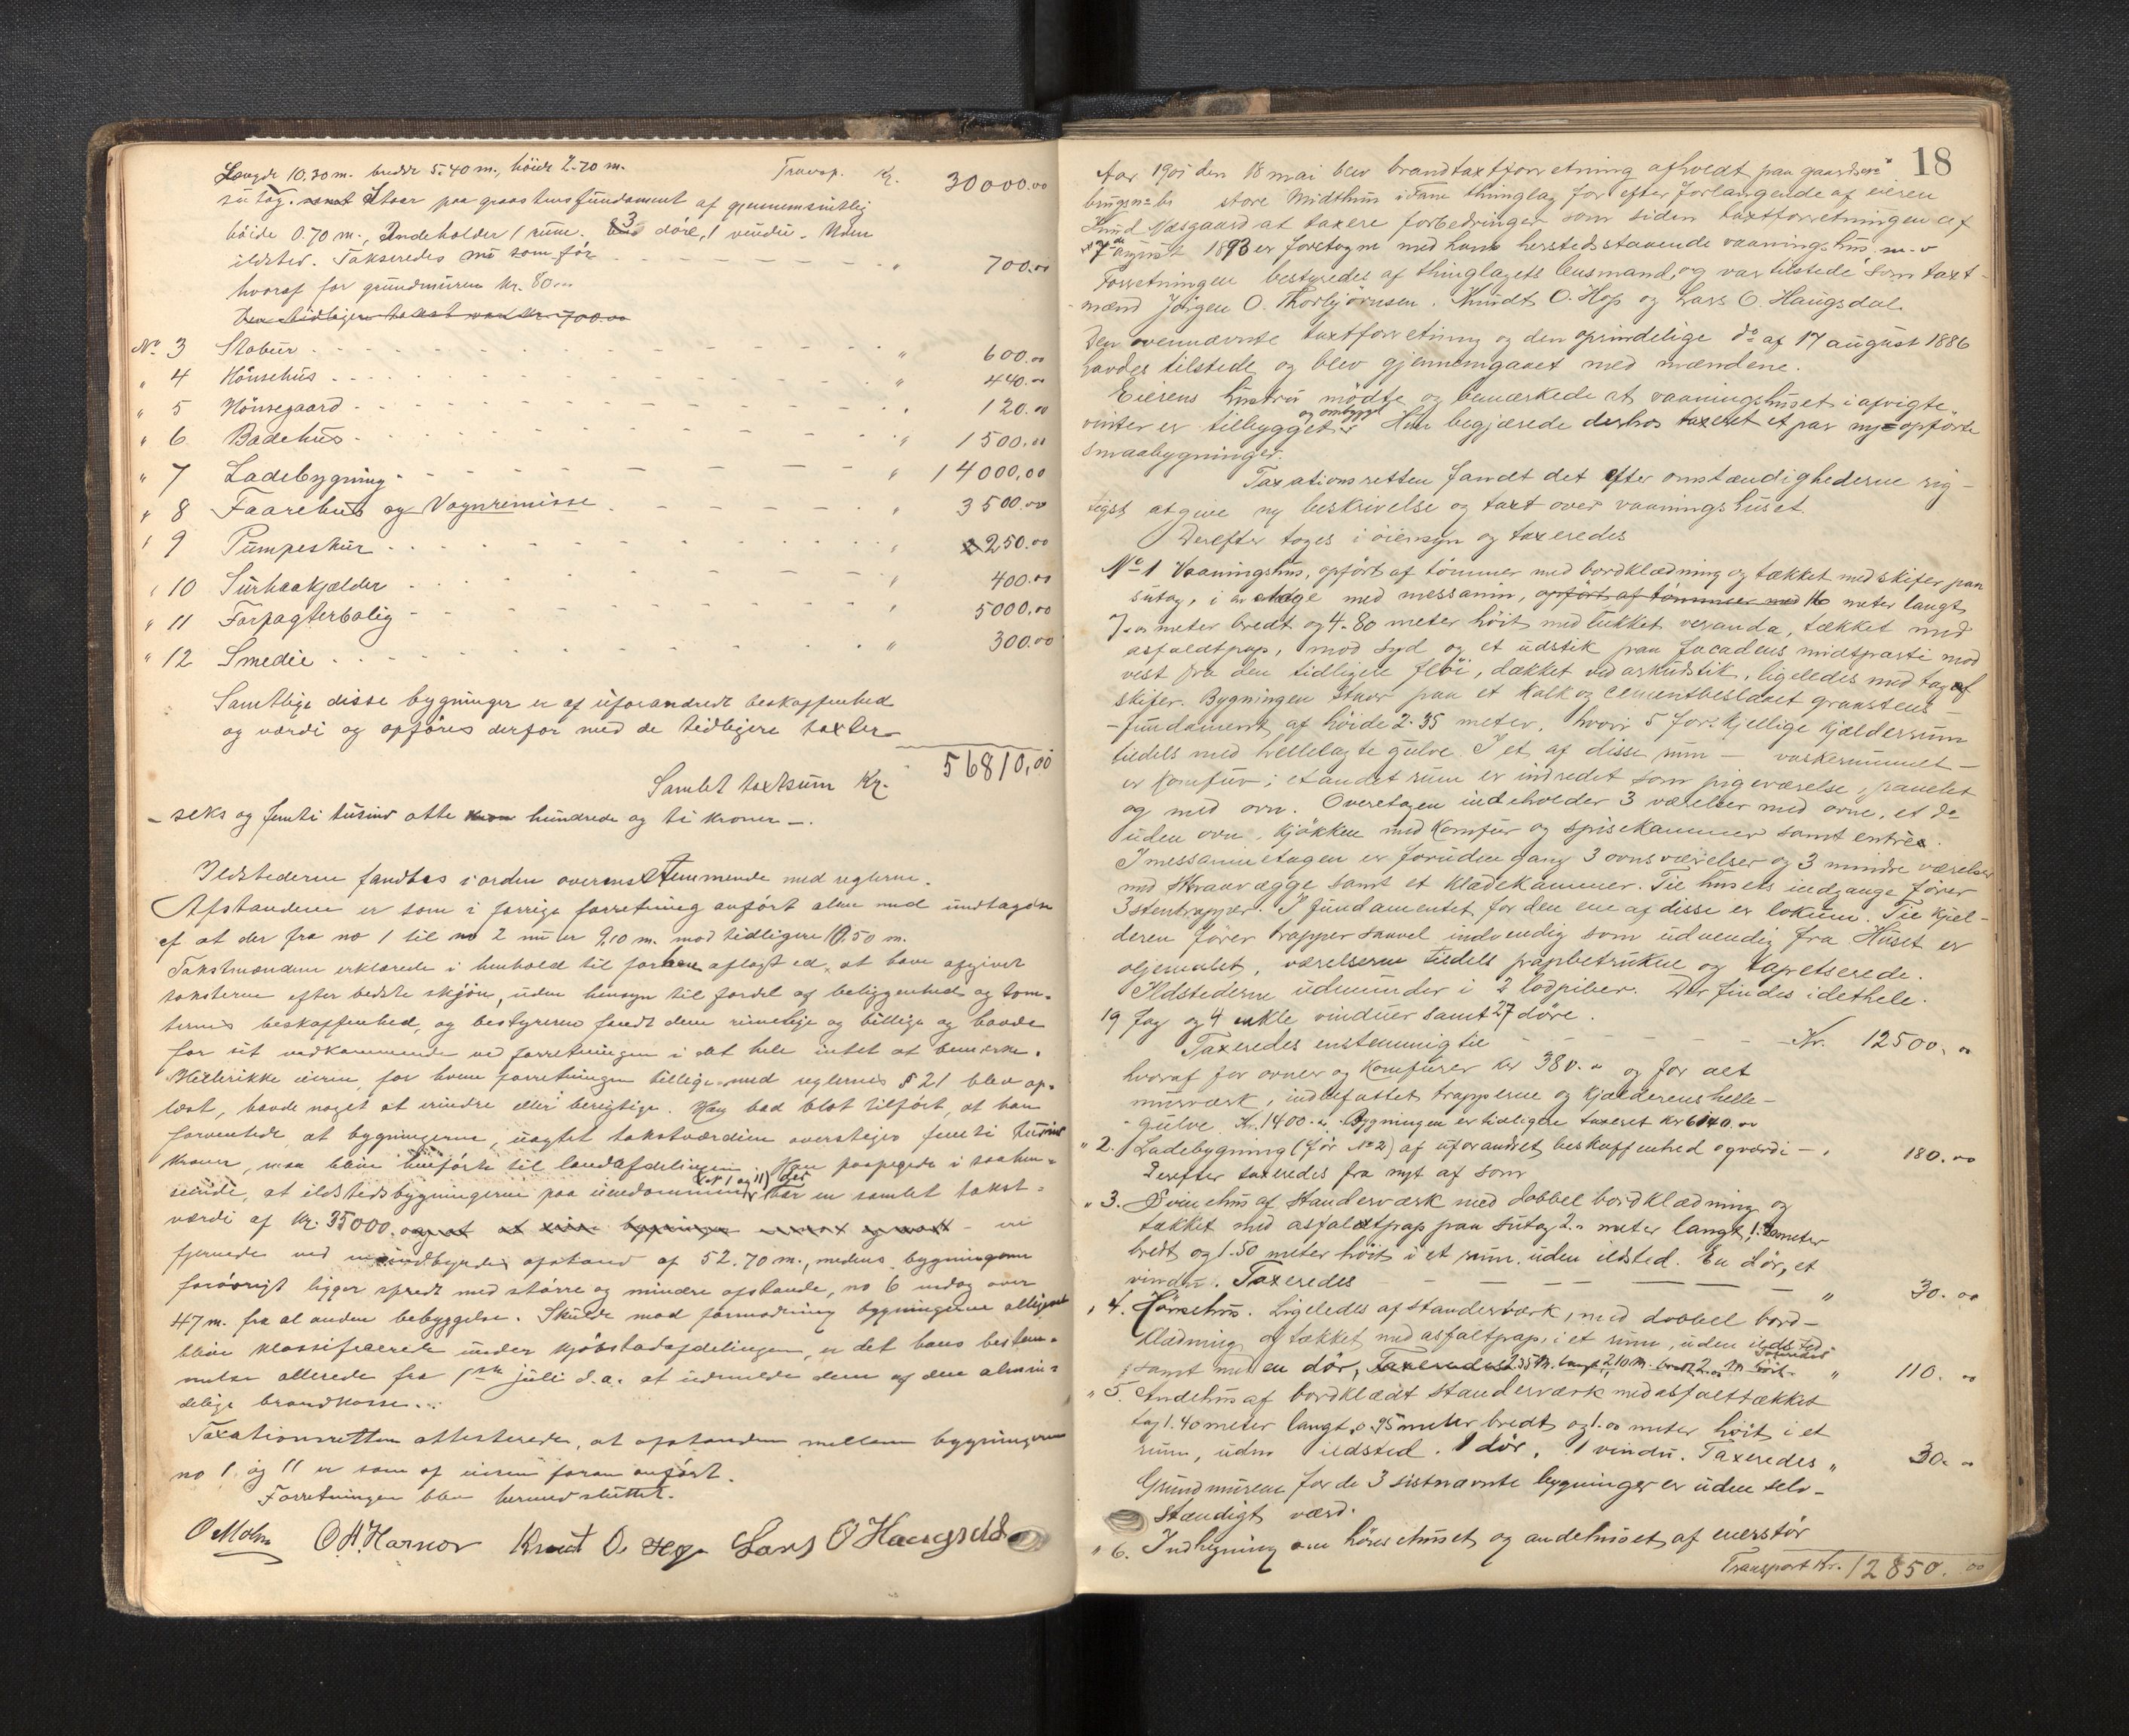 Længde 10.30 m. bredde 5.40 m., höide 2.70 m. Transp. Kr. 30000.00
sutag. samt Staar paa graastensfundament af gjennemsnitlig
höide 0.70 m., Indeholder 1 rum. 3 döre, 1 vindu. Uden
ildsted. Takseredes nu som för " 700.00
hvoraf for grundmuren kr. 80.00
Den tidligere takst var kr. 700.00
No. 3 Stabur " 600.00
" 4 Hönsehus " 440.00
" 5 Hönsegaard " 120.00
" 6 Badehus " 1500.00
" 7 Ladebygning " 14000,00
" 8 Faarehus og Vognremisse " 3500.00
" 9 Pumpeskur " 250.00
" 10 Surhaakjælder " 400.00
" 11 Forpagterbolig " 5000.00
" 12 Smedie " 300.00
Samtlige disse bygninger er af uforandredt beskaffenhed
og værdi og opföres derfor med de tidligere taxter
Samlet taxtsum Kr. 56810,00
- seks og femti tusind otte hundrede og ti kroner -.
Ildstederne fandtes i orden overensstemmende med reglerne.
Afstandene er som i forrige forretning anfört alene med undtagelse
af at der fra no 1 til no 2 nu er 9.10 m. mod tidligere 10.50 m.
Takstmændene erklærede i henhold til forhen aflagt ed, at have afgivet
taksterne efter bedste skjön, uden hensyn til fordel af beliggenhed og tom-
ternes beskaffenhed, og bestyreren fandt dem rimelige og billige og havde
for sit vedkommende ved forretningen i det hele intet at bemerke.
Hellerikke eieren, for hvem forretningen tillige med reglernes § 21 blev op-
læst, havde noget at erindre eller berigtige. Han bad blot tilfört, at han
forventede, at bygningerne, uagtet takstværdien overstiger femti tusind
kroner, maa blive henförte til landafdelingen. Han paapegede i saahen-
seende, at ildstedsbygningerne paa eiendommen (No 1 og 11) har en samlet takst-
værdi af kr. 35000. og at
fjernede ved indbyrdes afstand af 52.70 m., medens bygningerne
forövrigt ligger spredt med större og mindre afstande, no 6 endog over
47 m. fra al anden bebyggelse. Skulde mod formodning bygningerne alligevel
blive klassificerede under kjöbstadafdelingen, er det hans bestem-
melse allerede fra 1ste juli d.a. at udmelde dem af den almin-
delige brandkasse.
Taxationsretten attesterede, at afstanden mellem bygningerne
no 1 og 11 er som af eieren foran anfört.
Forretningen blev hermed sluttet.
O Mohn O. H. Harnor Knut O. Hop Lars O Haugsdal
18
Aar 1901 den 18 mai blev brandtaxtforretning afholdt paa gaardens
brugsn br store Midthun i Fane thinglag for efter forlangende af eieren
Knud Næsgaard at taxere forbedringer som siden taxtforretningen af
17de august 1893 er foretagne med hans herstedsstaaende vaaningshus m.v
Forretningen bestyredes af thinglagets lensmand, og var tilstede som taxt-
mænd Jörgen O. Thorbjörnsen, Knudt O. Hop og Lars O. Haugsdal.
Den ovennævnte taxtforretning og den oprindelige do af 17 august 1886
havdes tilstede og blev gjennemgaaet med mændene.
Eierens hustru mödte og bemærkede at vaaningshuset i afvigte
vinter er tilbygget og ombygget. Hun begjærede derhos taxeret et par ny-opförte
smaabygninger.
Taxationsretten fandt det efter omstændighederne rig-
tigst at give ny beskrivelse og taxt over vaaningshuset.
Derefter toges i öiensyn og taxeredes
No 1 Vaaningshus, opfört af tömmer med bordklædning og tækket med skifer paa
sutag, i en etage med messanin, opfört af tömmer med 16 meter langt
7.00 meter bredt og 4.80 meter höit med lukket veranda, tækket med
asfaldtpap, mod Syd og et udstik paa facadens midtparti mod
vest fra den tidligere flöi, dækket ved arkudstik, ligeledes med tag af
skifer. Bygningen staar paa et kalk og cementbeslaaet graastens-
-fundament af höide 2.35 meter, hvori 5 forskjellige kjælderrum
tildels med hellelagte gulve. I et af disse rum - vaskerummet -
er komfur; et andet rum er indredet som pigeværelse, panelet
og med ovn. Overetagen indeholder 3 værelser med ovne, et do
uden ovn, kjökken med komfur og spisekammer samt entrée.
I messaninetagen er foruden gang 3 ovnsværelser og 3 mindre værelser
med skraavægge samt et klædekammer. Til husets indgange förer
3 stentrapper. I fundamentet for den ene af disse er lokum. Til kjel-
deren förer trapper saavel indvendig som udvendig fra. Huset er
oljemalet, værelserne tildels papbetrukne og tapetserede.
Ildstederne udmunder i 2 lodpiber. Der findes i dethele
19 fag og 4 enkle vinduer samt 27 döre.
Taxeredes enstemmig til Kr. 12500.00
hvoraf for ovner og komfurer kr 380.00 og for alt
murværk, indbefattet trapperne og kjælderens helle-
-gulve Kr. 1400.00. Bygningen er tidligere taxeret kr 6140.00
" 2. Ladebygning (för No 2) af uforandret beskaffenhed og værdi - " 180.00
Derefter taxeredes fra nyt af som
" 3. Svinehus af Standerværk med dobbel bordklædning og
tækket med asfaldtpap paa sutag 2.00 meter langt, meter
bredt og 1.50 meter höit i et rum, uden ildsted. En dör, et
vindu. Taxeredes " 30.00
" 4. Hönsehus. Ligeledes af standerværk, med dobbel bord-
klædning og tækket med asfaltpap, i et rum, uden ildsted,
samt med en dör, Taxeredes 2.35 m. langt 2.10 m. bredt 2.00 m höit. Taxeredes " 110.00
" 5. Andehus af bordklædt standerværk med asfalttækket
tag 1.40 meter langt, 0.95 meter bredt og 1.00 meter höit i et
rum, uden ildsted. 1 dör, 1 vindu. Taxeredes " 30.00
Grundmurene for de 3 sistnævnte bygninger er uden selv-
stændigt værd.
" 6. Indhegning om hönsehuset og andehuset af
Transport Kr. 12850.00